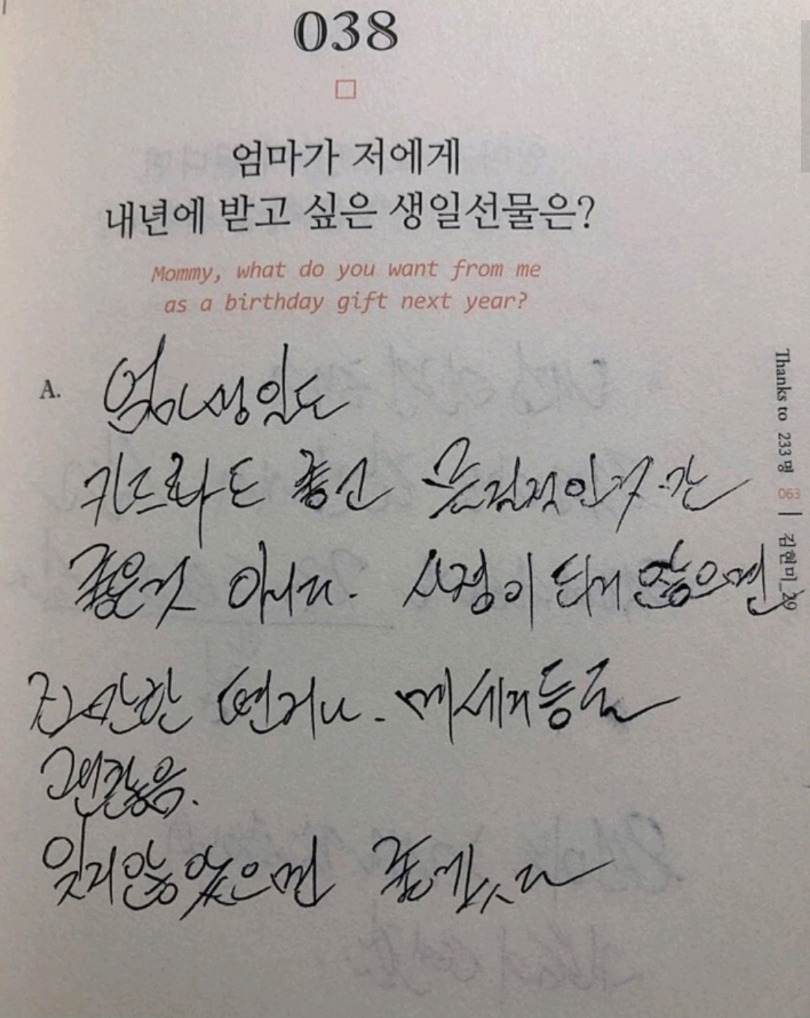 038
엄마가 저에게
내년에 받고 싶은 생일선물은?
Mommy, what do you want from me
as a birthday gift next year?
A. 생일도
카드라도 좋고 물질적인거만
좋은것 아니다. 사정이 되지 않으면
간단한 편지나. 메세지등도
괜찮음.
잊지않았으면 좋겠다
Thanks to 233명 063 김현미_29